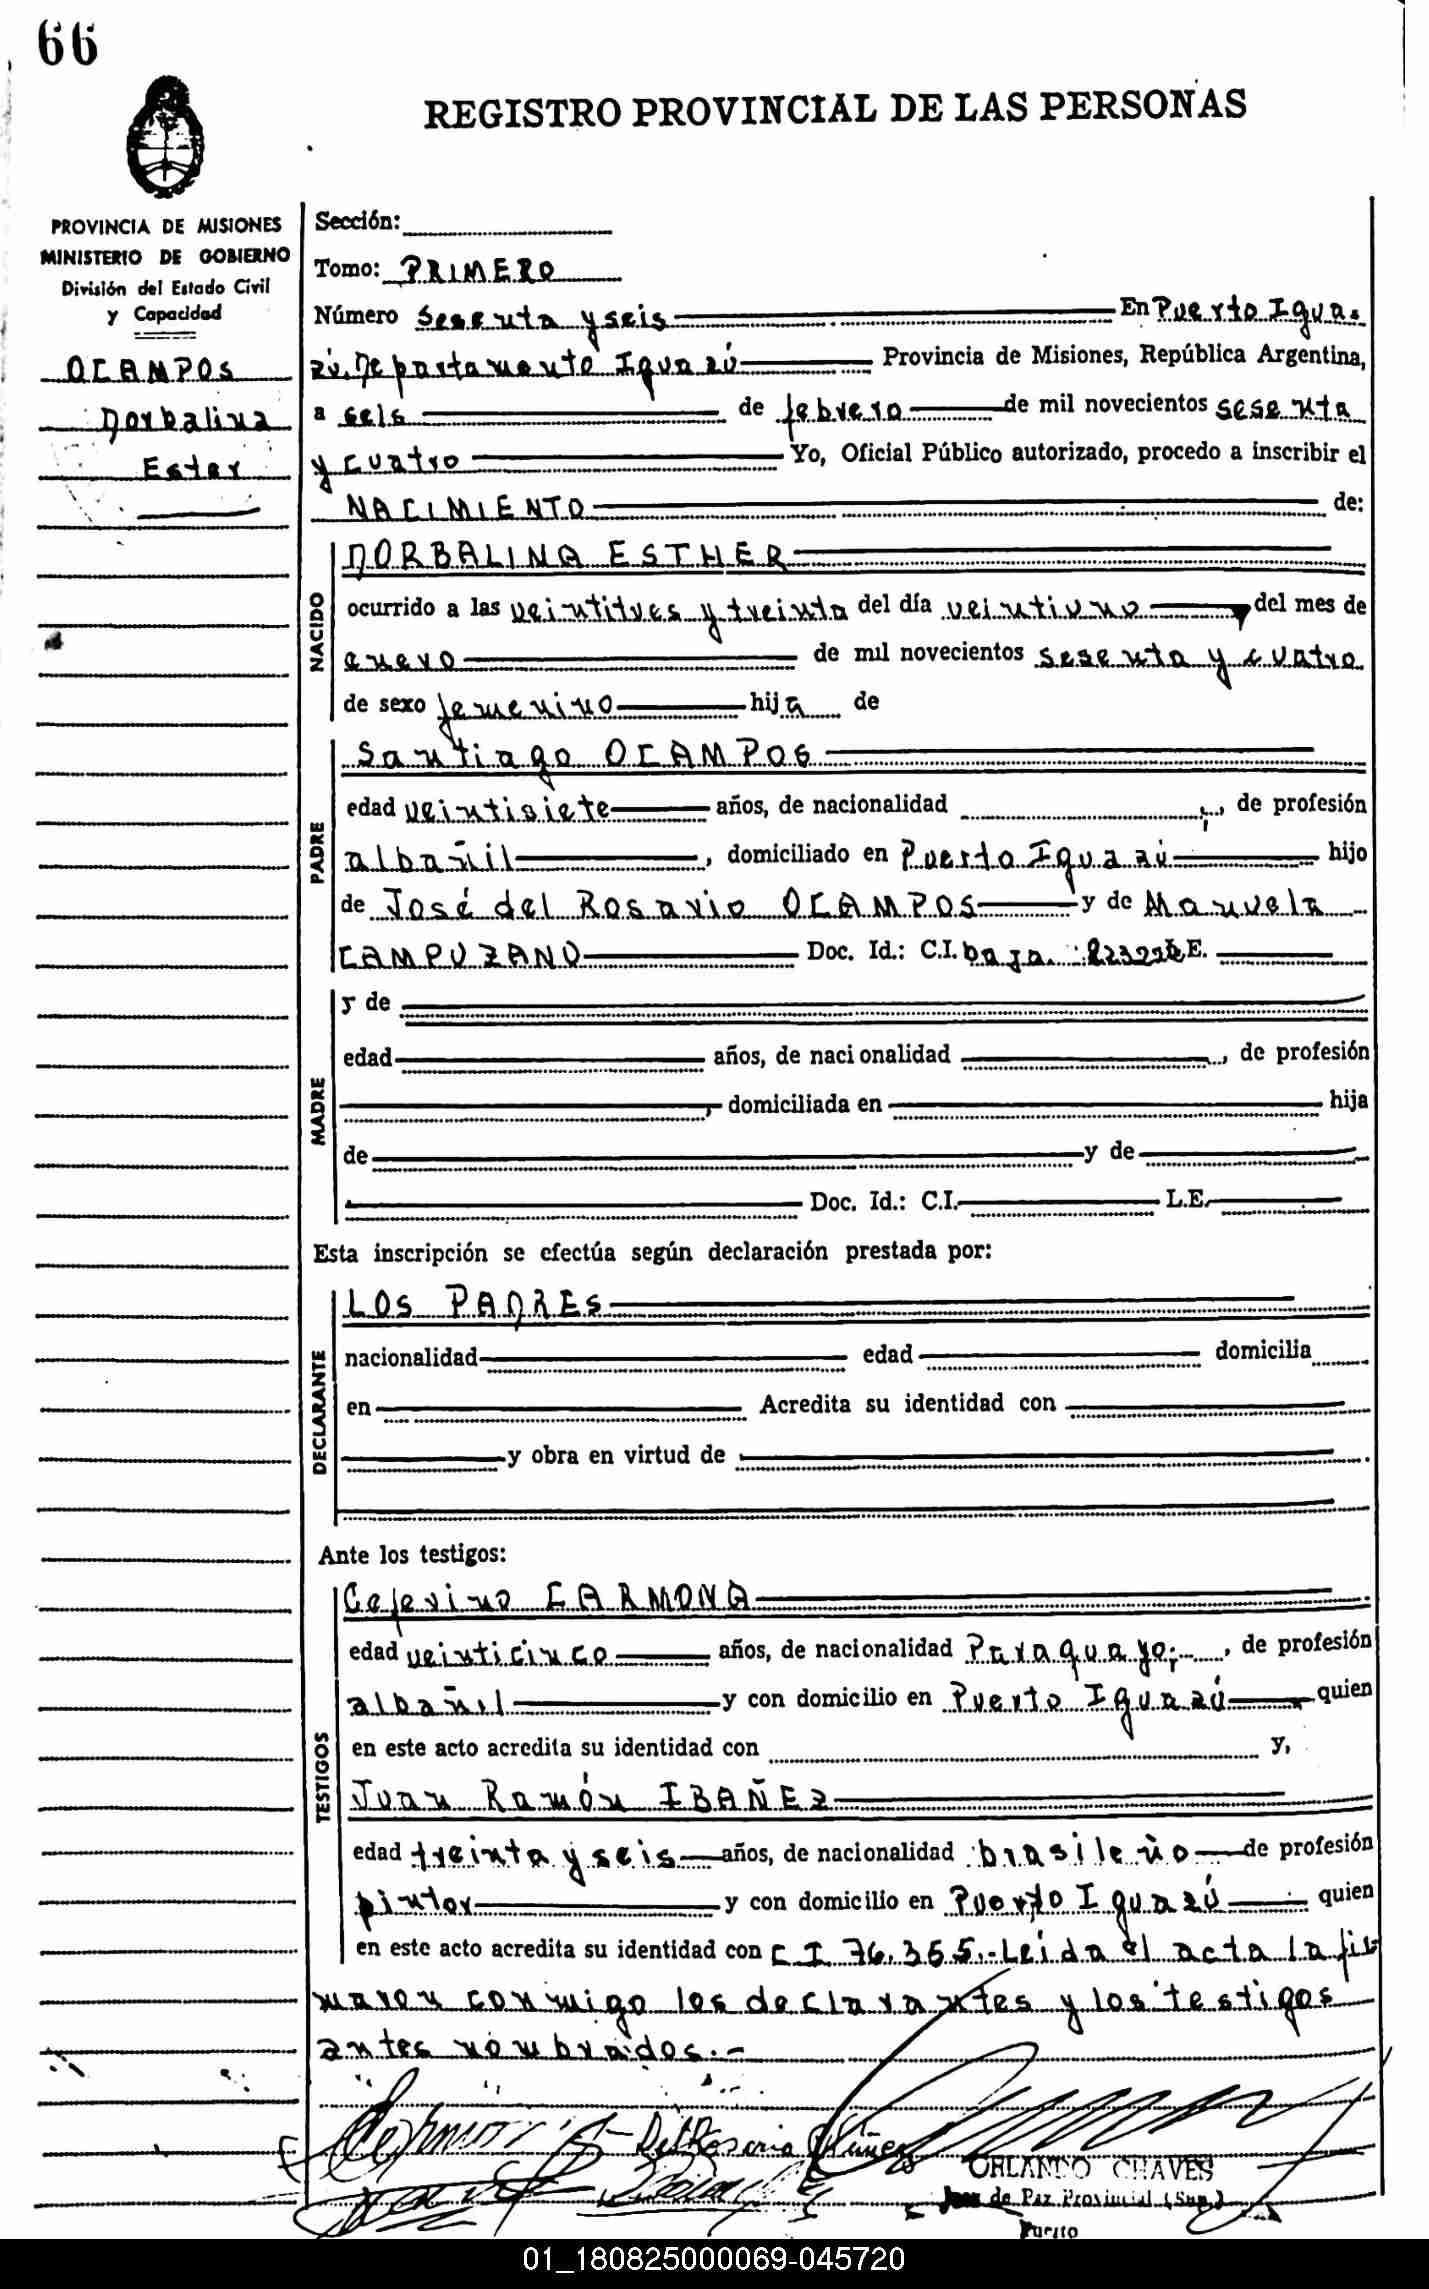 66
REGISTRO PROVINCIAL DE LAS PERSONAS
PROVINCIA DE MISIONES
MINISTERIO DE GOBIERNO
División del Estado Civil
y Capacidad
OCAMPOS
Norbalina
Ester
Sección:
Tomo: PRIMERO
Número sesenta y seis En Puerto Igua-
zú. Departamento Iguazú Provincia de Misiones, República Argentina,
a seis de febrero de mil novecientos sesenta
y cuatro Yo, Oficial Público autorizado, procedo a inscribir el
NACIMIENTO de:
NACIDO
NORBALINA ESTHER
ocurrido a las veintitres y treinta del día veintiuno del mes de
enero de mil novecientos sesenta y cuatro
de sexo femenino hija de
PADRE
Santiago OCAMPOS
edad veintisiete años, de nacionalidad , de profesión
albañil , domiciliado en Puerto Iguazú hijo
de José del Rosario OCAMPOS y de Manuela
CAMPUZANO Doc. Id.: C.I. baja. E.
MADRE
y de
edad años, de nacionalidad , de profesión
, domiciliada en hija
de y de
Doc. Id.: C.I. L.E.
Esta inscripción se efectúa según declaración prestada por:
DECLARANTE
LOS PADRES
nacionalidad edad domicilia
en Acredita su identidad con
y obra en virtud de
Ante los testigos:
TESTIGOS
Ceferino CARMONA
edad veinticinco años, de nacionalidad Paraguayo; , de profesión
albañil y con domicilio en Puerto Iguazú quien
en este acto acredita su identidad con y,
Juan Ramón IBAÑEZ
edad treinta y seis años, de nacionalidad brasileño de profesión
pintor y con domicilio en Puerto Iguazú quien
en este acto acredita su identidad con C I 76.355.- Leída el acta la fir
maron conmigo los declarantes y los testigos
antes nombrados.-
Del Rosario
ORLANDO CHAVES
Juez de Paz Provincial (Sup.)
Puerto
01_180825000069-045720